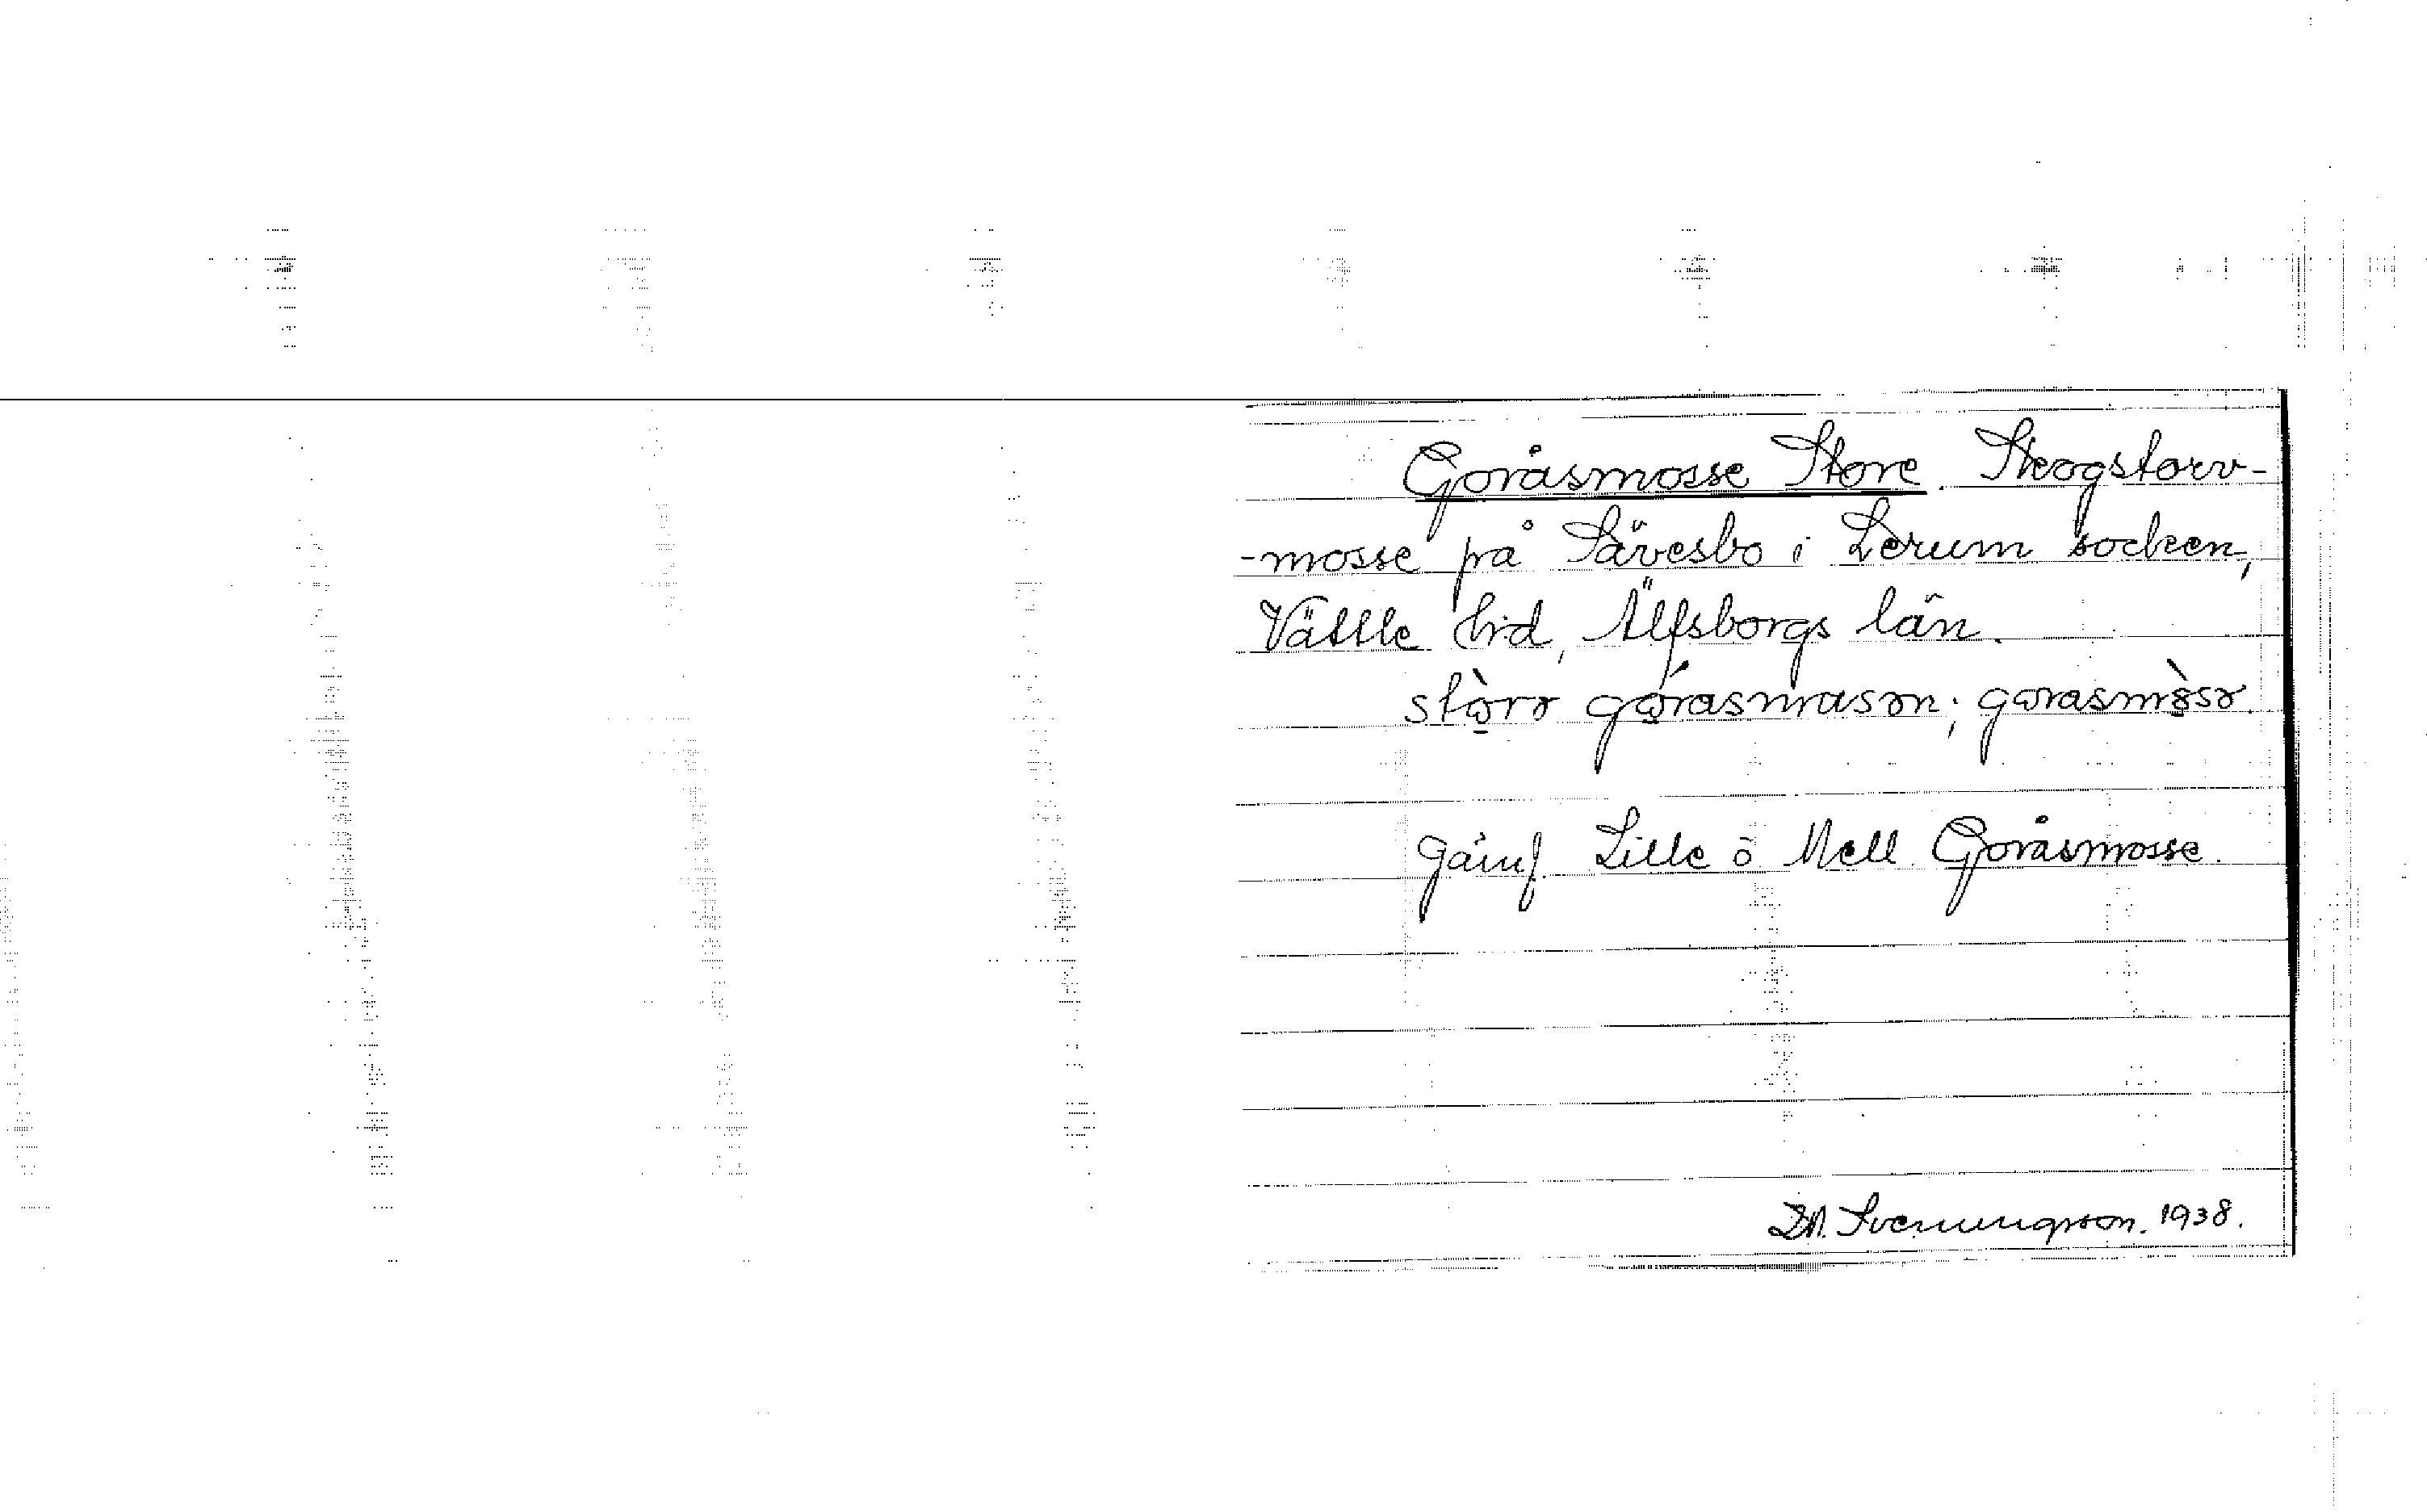 Goråsmosse Store. Skogstorv-
-mosse på Sävesbo i Lerum socken,
Vättle hd, Älfsborgs län.
Jämf. Lille o Mell. Goråsmosse.
Svenungsson. 1938.